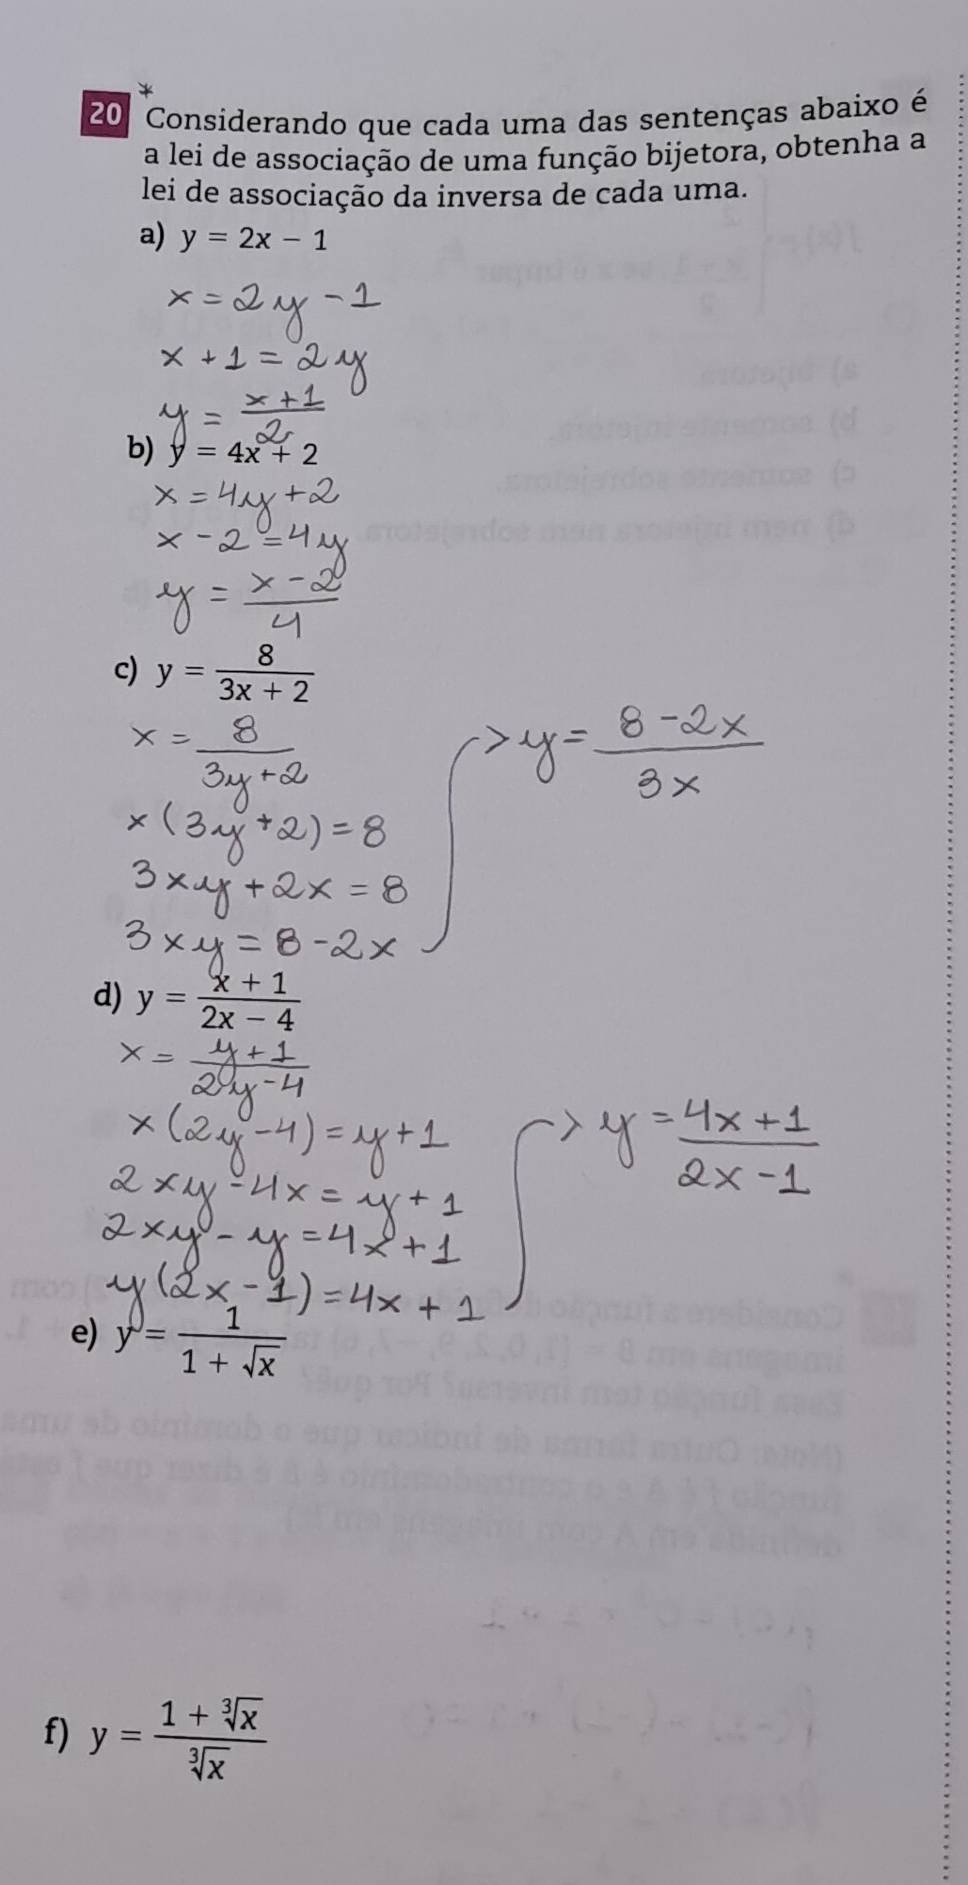 *
20 Considerando que cada uma das sentenças abaixo é
a lei de associação de uma função bijetora, obtenha a
lei de associação da inversa de cada uma.
a) y = 2x − 1
x = 2y − 1
x + 1 = 2y
y = (x + 1)/2
b) y = 4x + 2
x = 4y + 2
x − 2 = 4y
y = (x − 2)/4
c) y = 8/(3x + 2)
x = 8/(3y + 2)
x(3y + 2) = 8
3xy + 2x = 8
3xy = 8 − 2x
> y = (8 − 2x)/(3x)
d) y = (x + 1)/(2x − 4)
x = (y + 1)/(2y − 4)
x(2y − 4) = y + 1
2xy − 4x = y + 1
2xy − y = 4x + 1
y(2x − 1) = 4x + 1
> y = (4x + 1)/(2x − 1)
e) y = 1/(1 + √x)
f) y = (1 + ∛x)/∛x